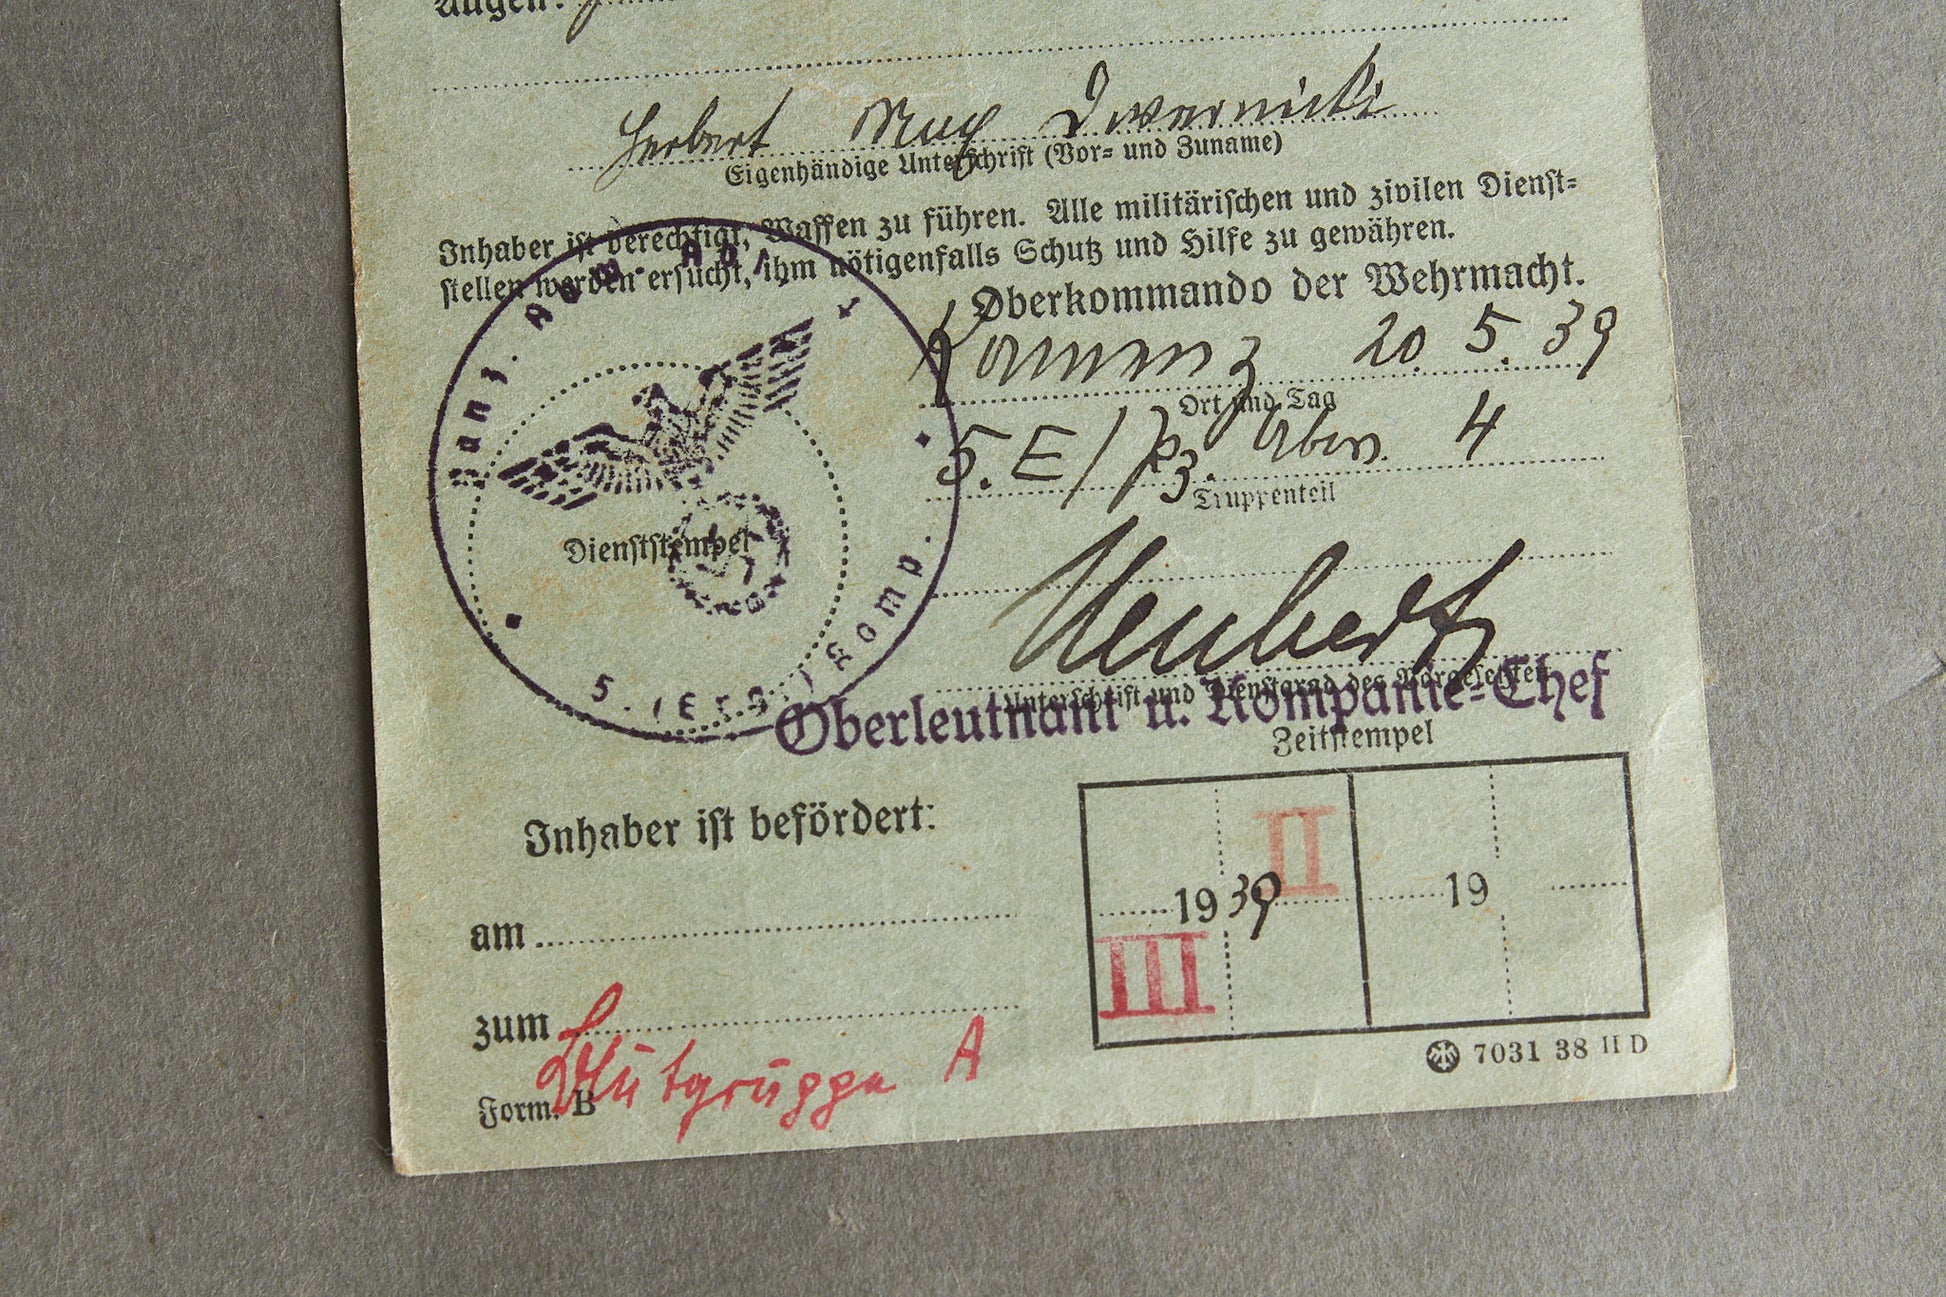 Augen:
Herbert Max Dwernicki
Eigenhändige Unterschrift (Vor- und Zuname)
Inhaber ist berechtigt, Waffen zu führen. Alle militärischen und zivilen Dienst-
stellen werden ersucht, ihm nötigenfalls Schutz und Hilfe zu gewähren.
Oberkommando der Wehrmacht.
Kamenz 20. 5. 39
Ort und Tag
5. E/Pz. Abw. 4
Truppenteil
Panz. Abw. Abt. 4
5. (Ers.) Komp.
Dienststempel
Neubert
Unterschrift und Dienstgrad des Vorgesetzten
Oberleutnant u. Kompanie-Chef
Zeitstempel
Inhaber ist befördert:
II
1939
19
III
am
zum
Blutgruppe A
Form. B
7031 38 II D